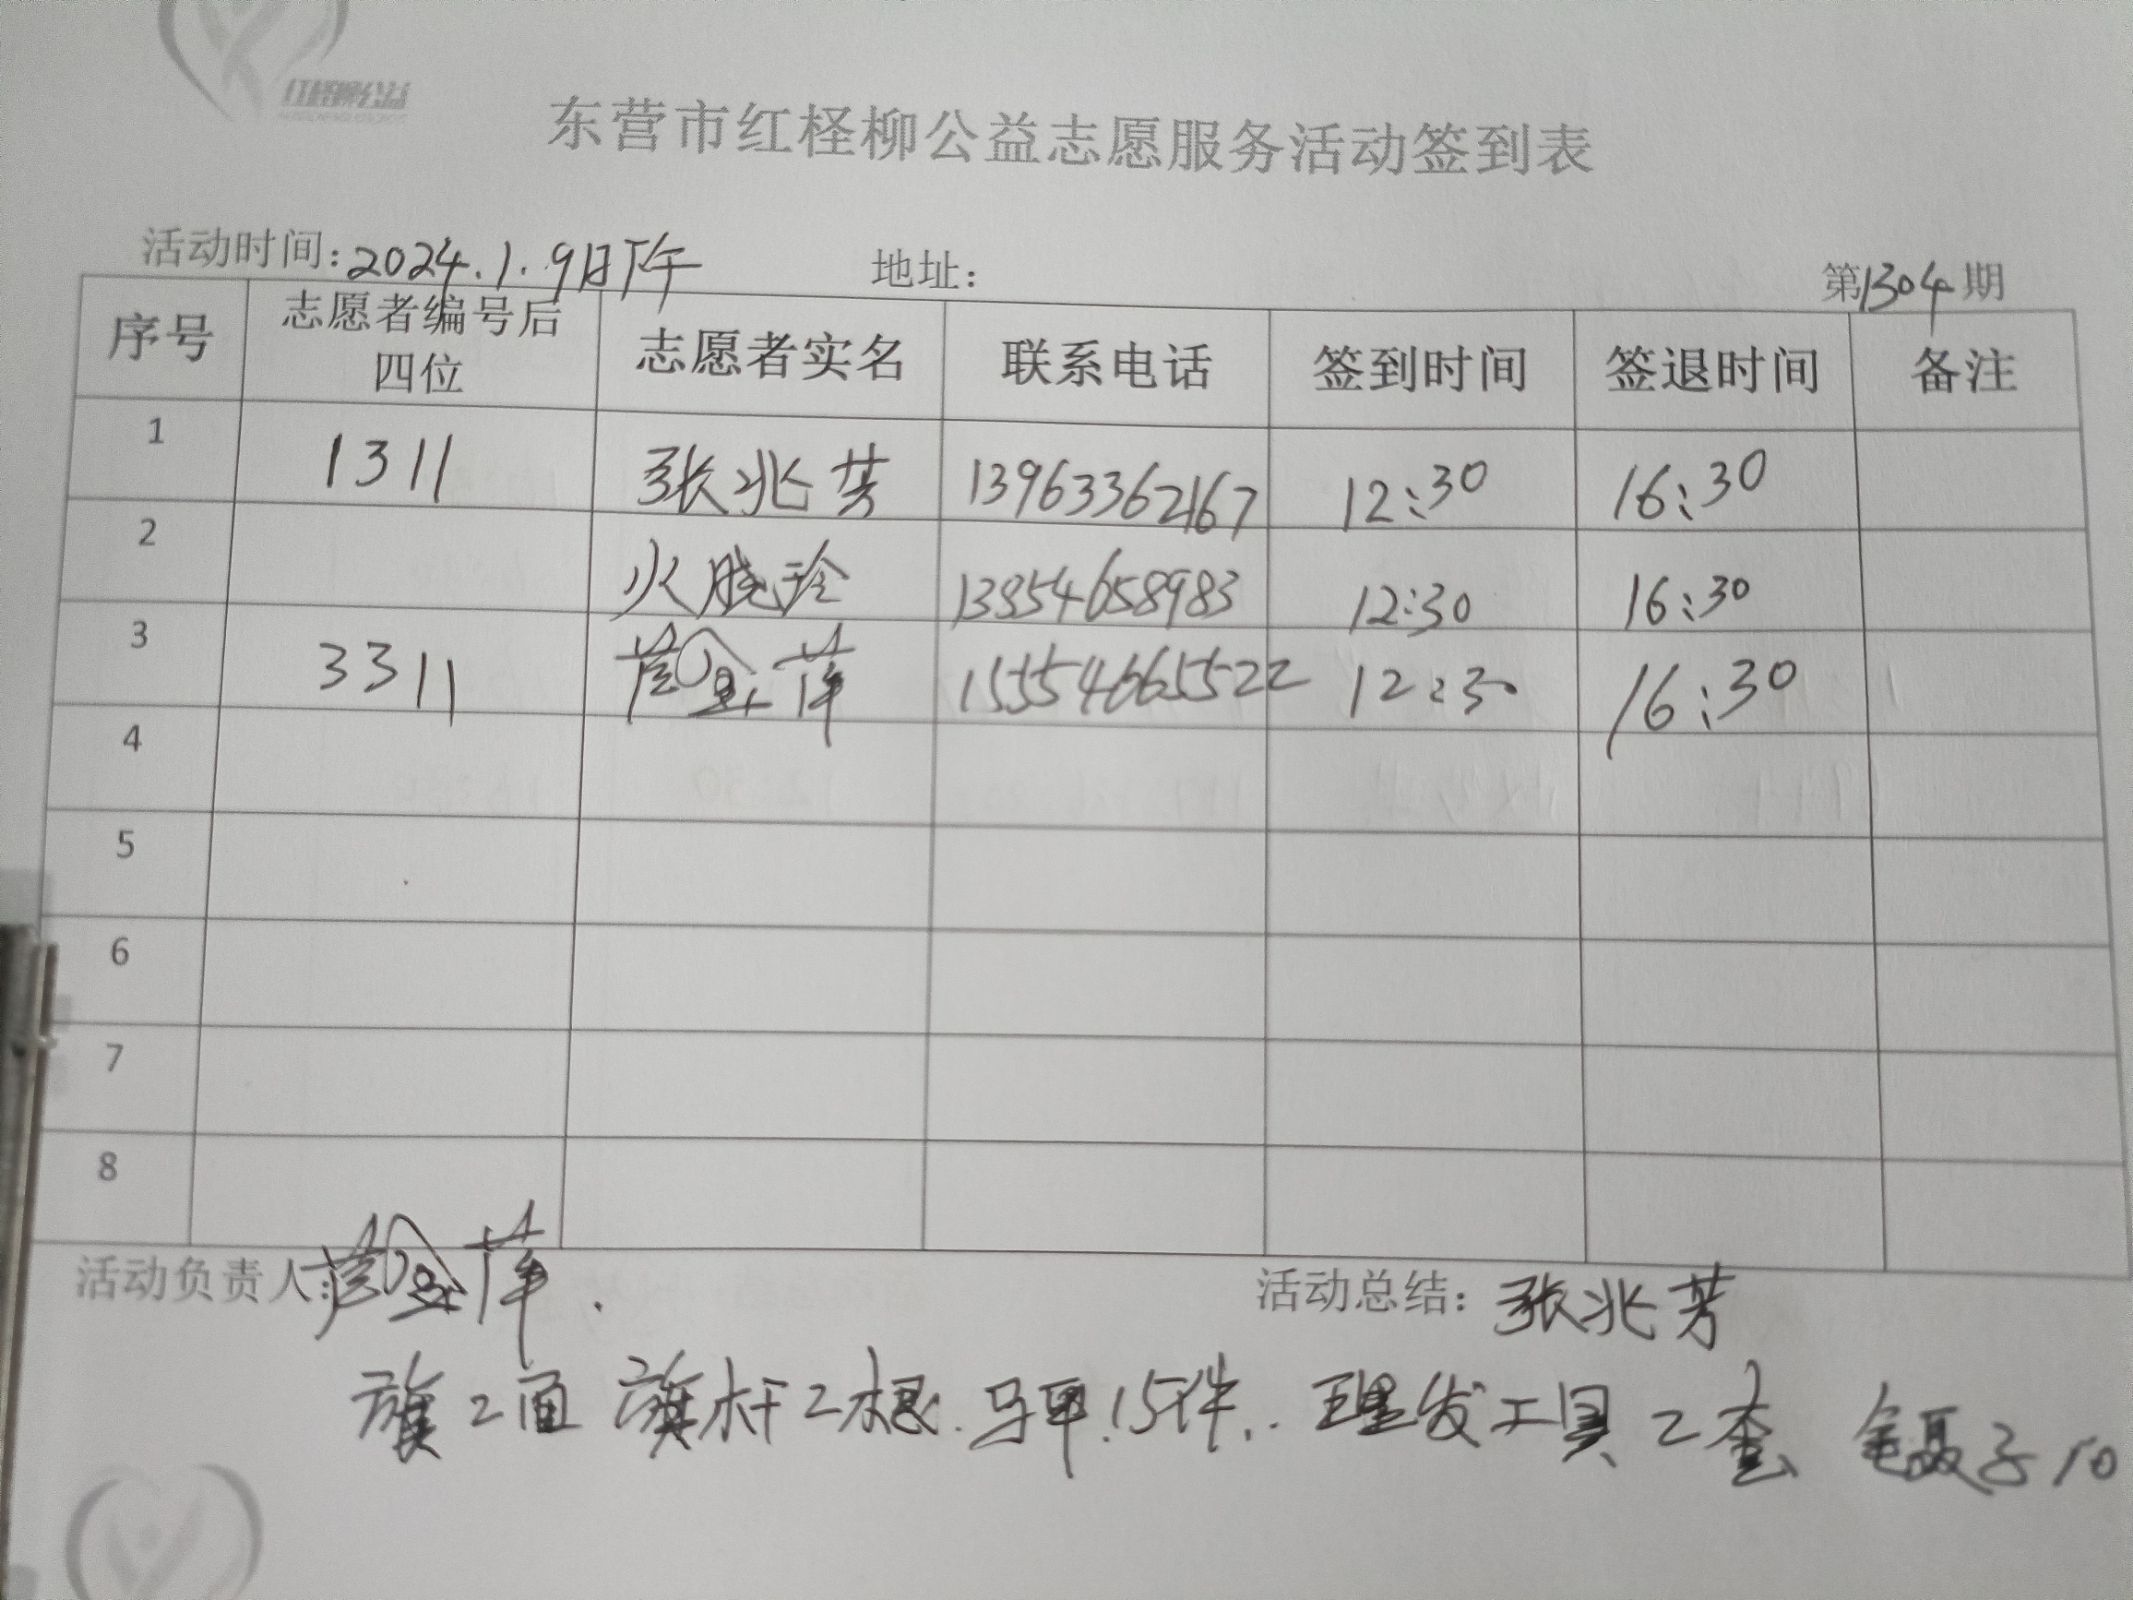 红柽柳公益
东营市红柽柳公益志愿服务活动签到表
活动时间:2024.1.9日下午 地址: 第1304期
序号 志愿者编号后四位 志愿者实名 联系电话 签到时间 签退时间 备注
1 1311 张兆芳 13963362167 12:30 16:30
2 火晓玲 13854658983 12:30 16:30
3 3311 15554665522 12:30 16:30
4
5
6
7
8
活动负责人: 活动总结: 张兆芳
旗2面 旗杆2根.马甲.15件.. 理发工具2套 镊子10